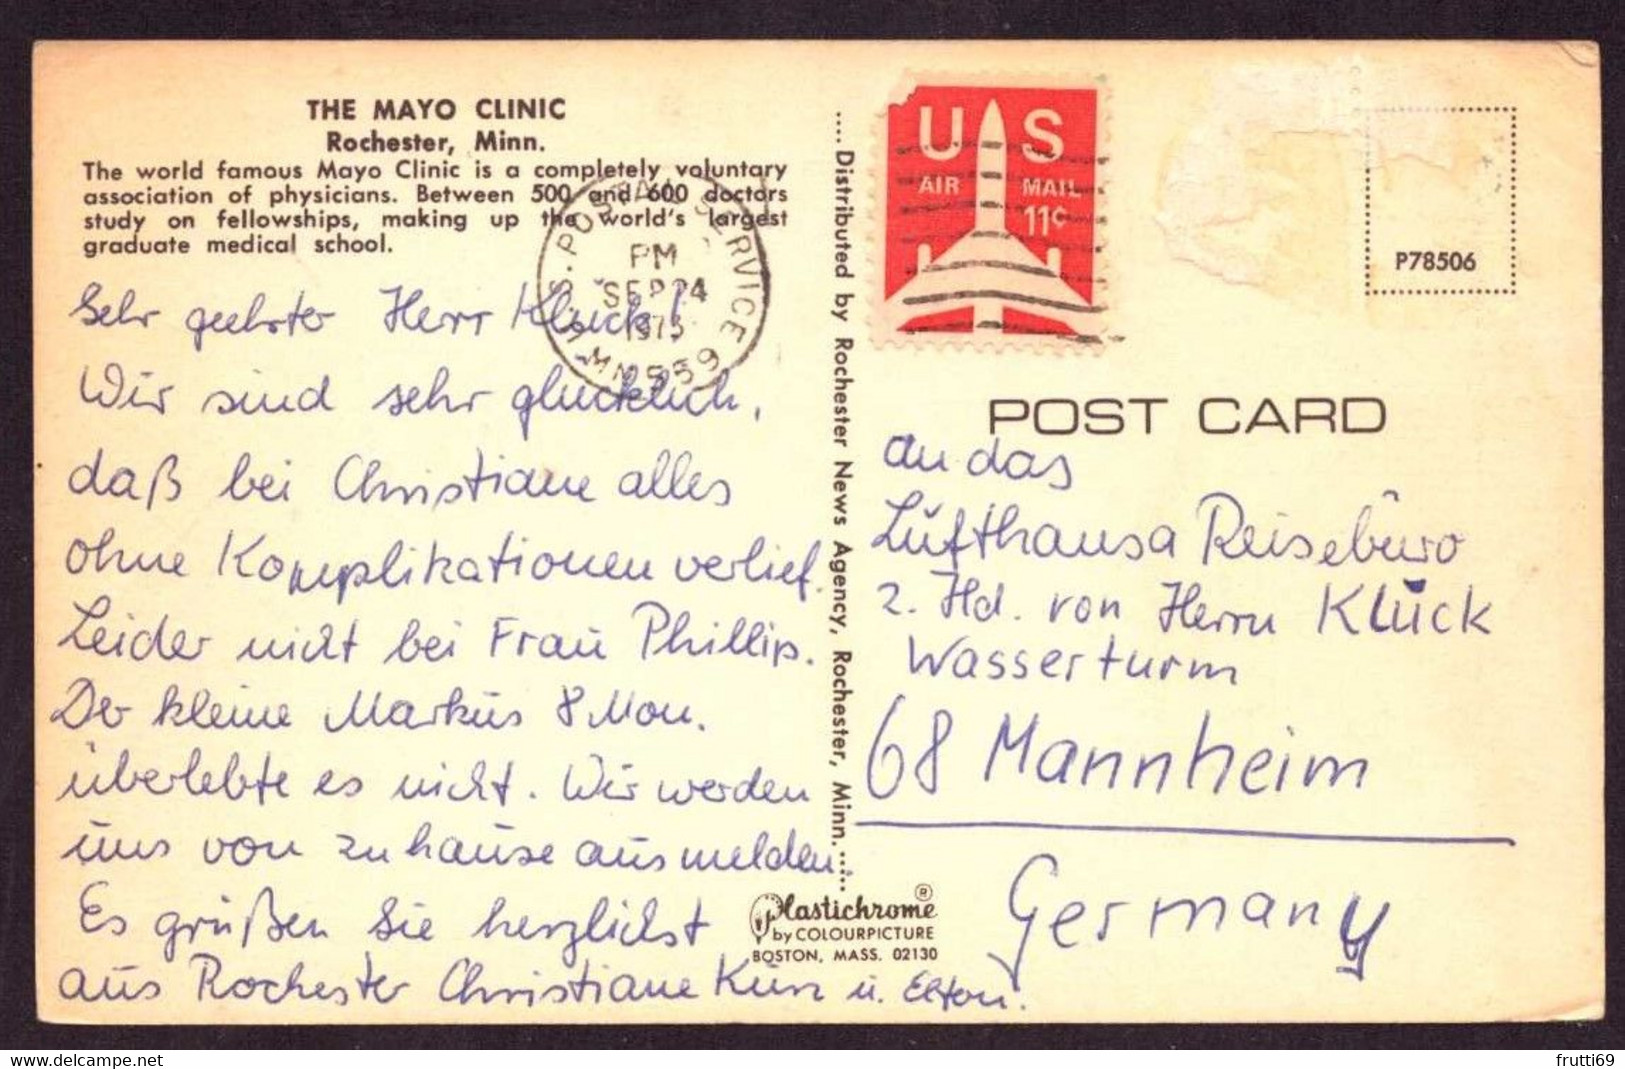 THE MAYO CLINIC
Rochester, Minn.
The world famous Mayo Clinic is a completely voluntary
association of physicians. Between 500 and 600 doctors
study on fellowships, making up the world's largest
graduate medical school.
Sehr geehrter Herr Kluck!
Wir sind sehr glücklich,
daß bei Christiane alles
ohne Komplikationen verlief.
Leider nicht bei Frau Phillip.
Der kleine Markus 8 Mon.
überlebte es nicht. Wir werden
uns von zuhause aus melden.
Es grüßen Sie herzlichst
aus Rochester Christiane Kunz u. Eltern.
....Distributed by Rochester News Agency, Rochester, Minn.....
U.S. POSTAL SERVICE
PM
SEP 24
MN 559
US
AIR MAIL
11¢
P78506
POST CARD
an das
Lufthansa Reisebüro
z. Hd. von Herrn Kluck
Wasserturm
68 Mannheim
Germany
Plastichrome ®
by COLOURPICTURE
BOSTON, MASS. 02130
delcampe.net
frutti69